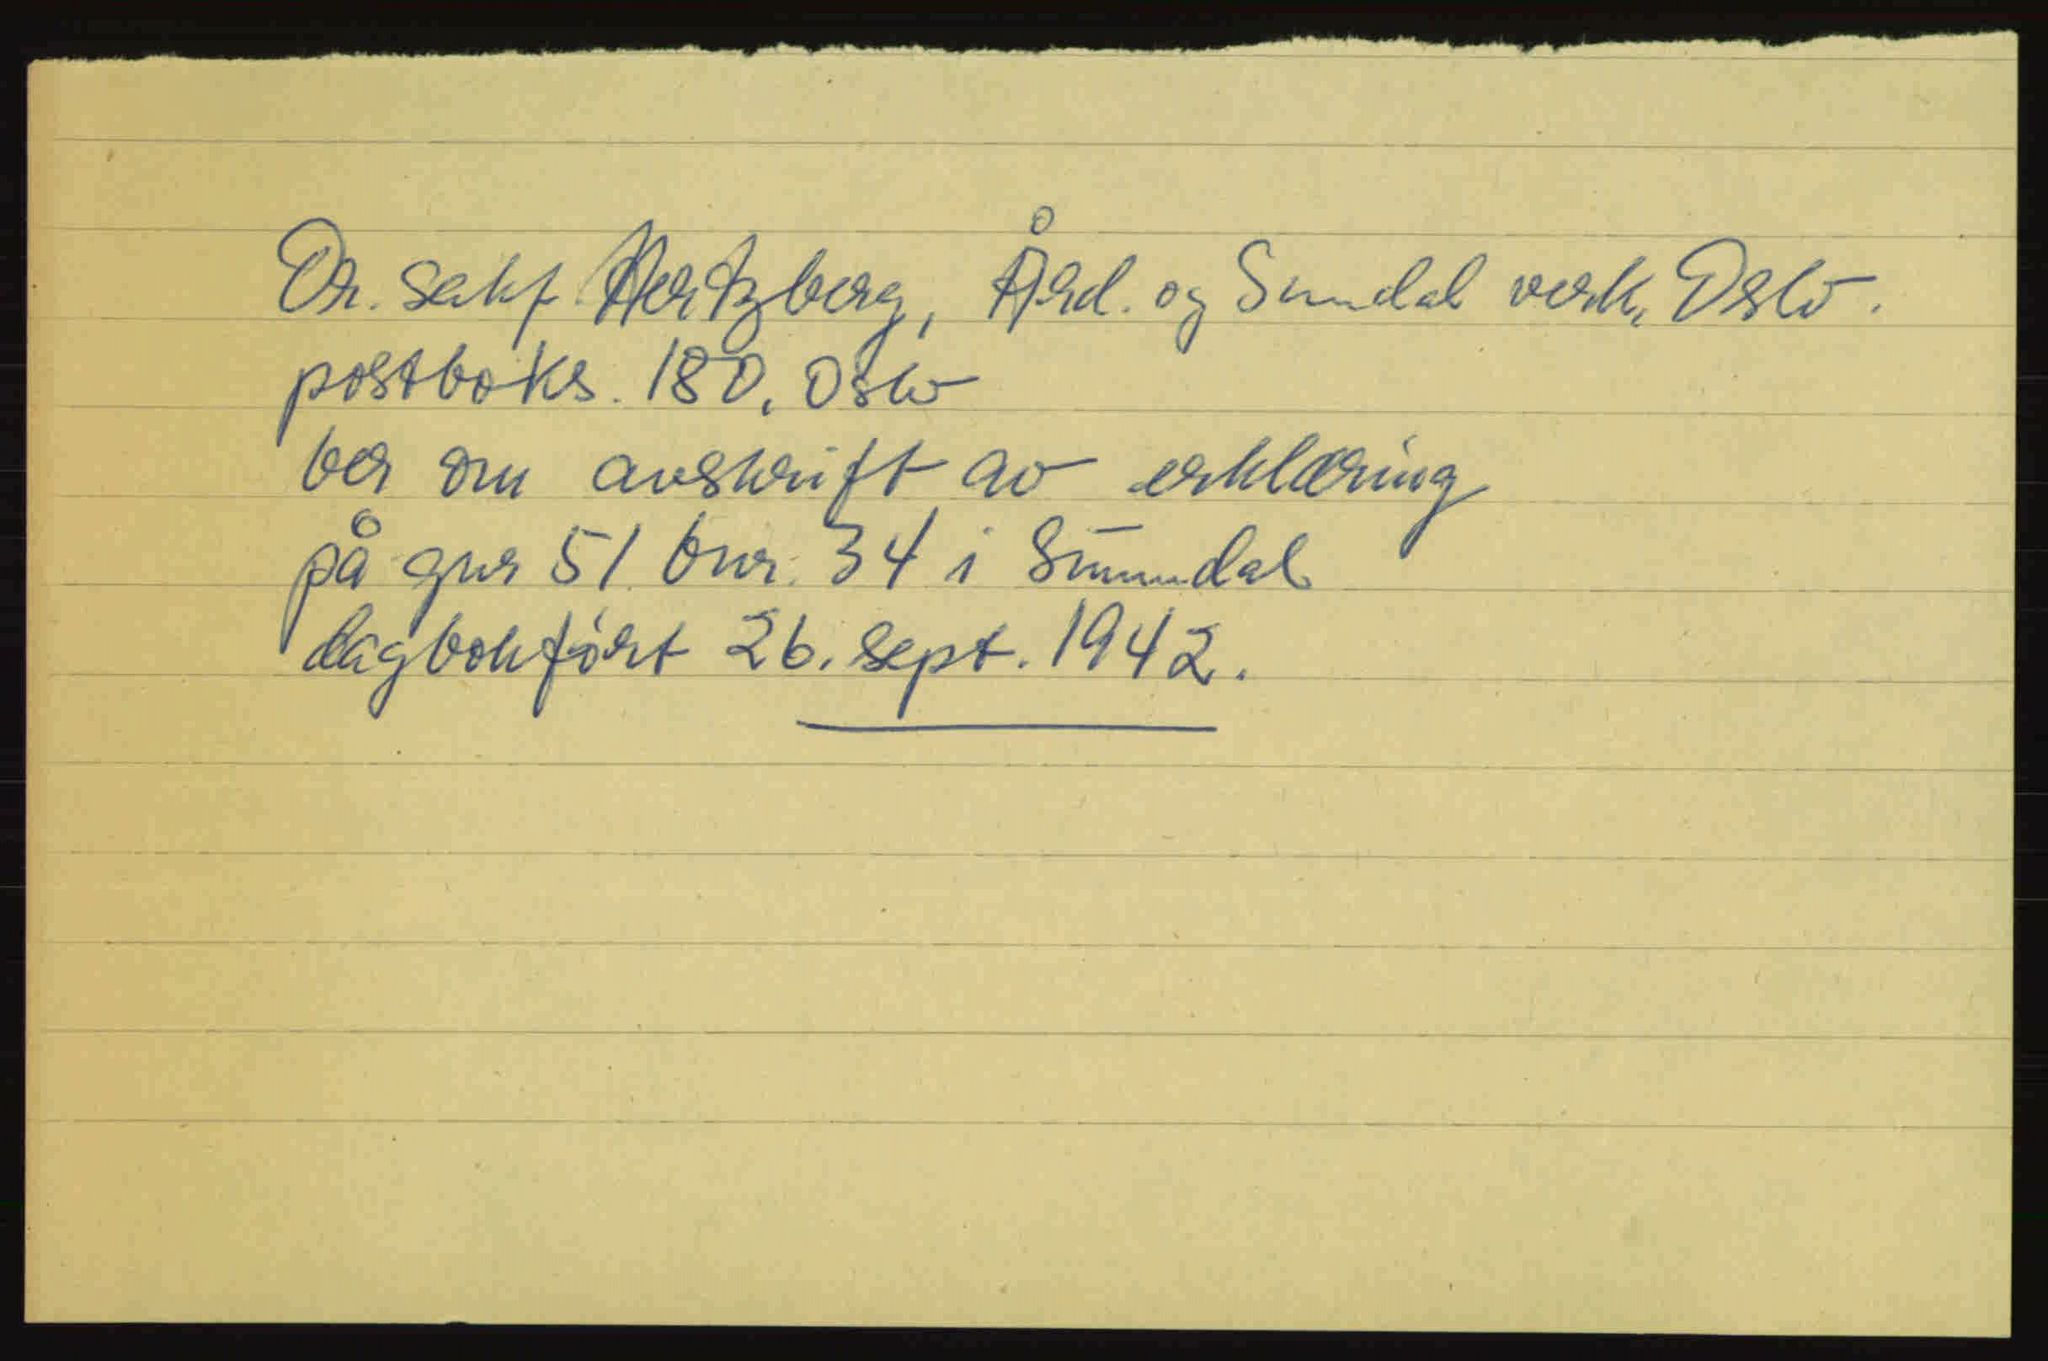 Or. sakf Hertzberg, Ård. og Sundal verk, Oslo.
postboks. 180. Oslo
ber om avskrift av erklæring
på gnr 51 bnr. 34 i Sunndal
dagbokført 26. sept. 1942.